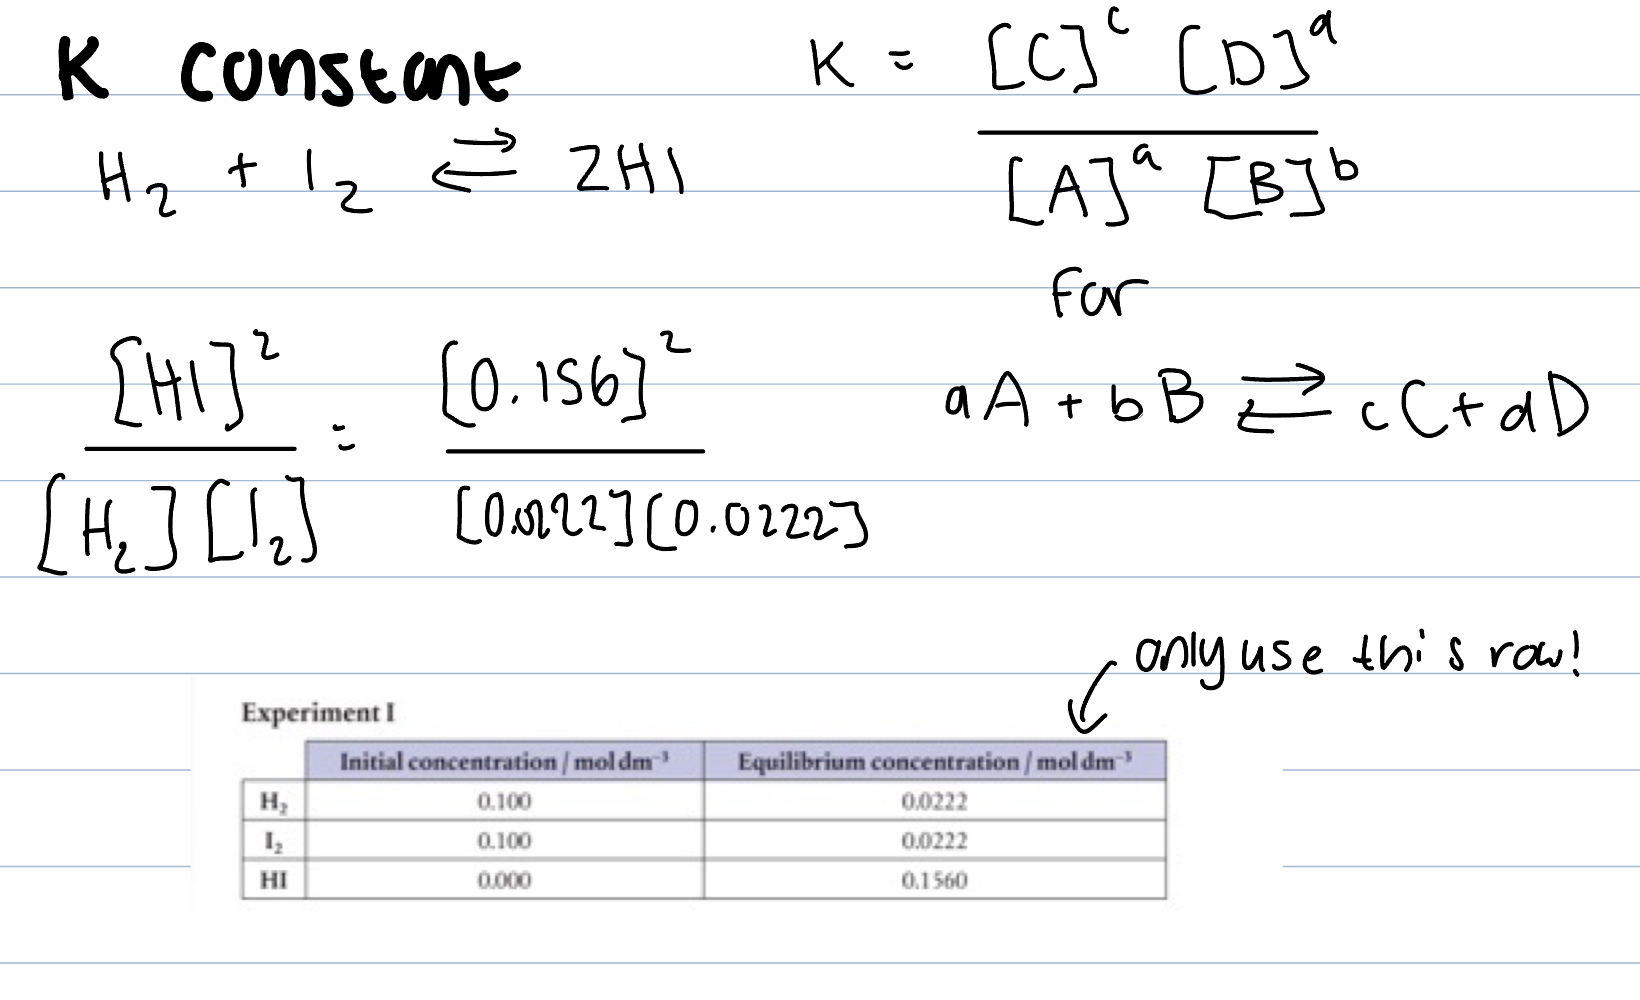 K constant
H₂ + I₂ ⇌ 2HI
K = [C]ᶜ [D]ᵈ
[A]ᵃ [B]ᵇ
for
aA + bB ⇌ cC + dD
[HI]² = [0.156]²
[H₂] [I₂] [0.0222][0.0222]
only use this row!
Experiment I
Initial concentration / mol dm⁻³ Equilibrium concentration / mol dm⁻³
H₂ 0.100 0.0222
I₂ 0.100 0.0222
HI 0.000 0.1560